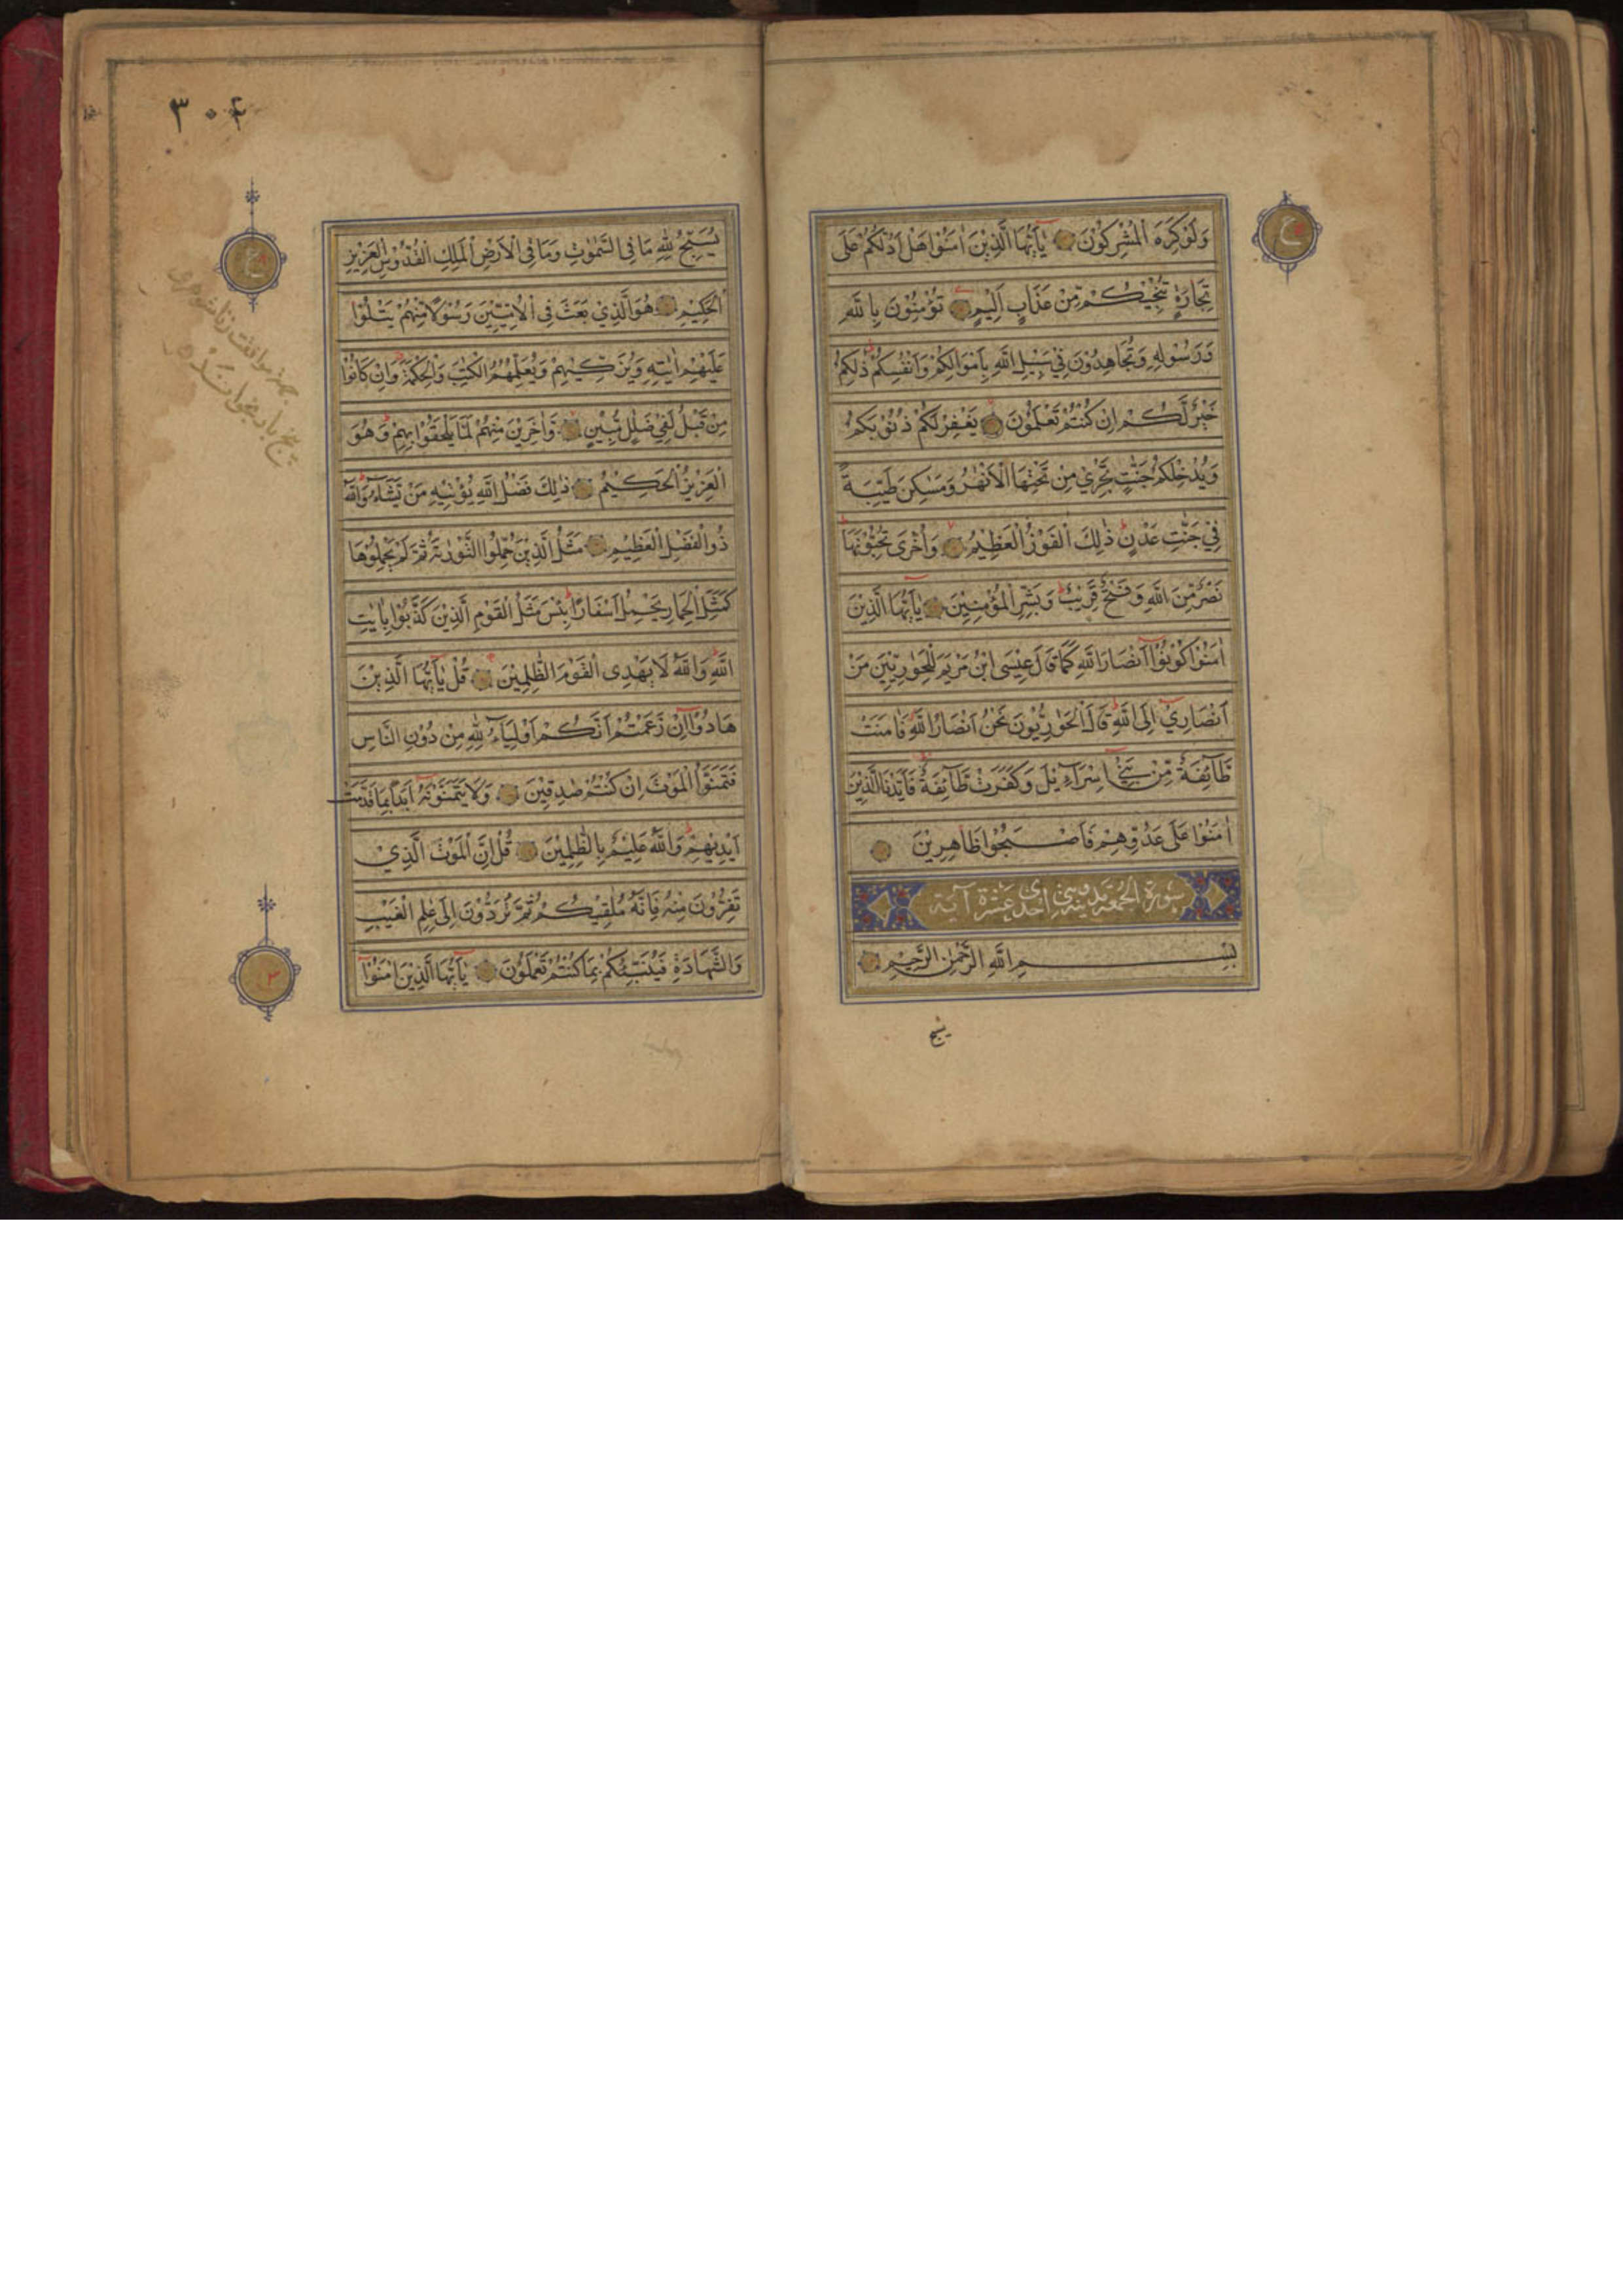 وَلَوْ كَرِهَ الْمُشْرِكُوْنَ يٰاَيُّهَا الَّذِيْنَ اٰمَنُوْا هَلْ اَدُلُّكُمْ عَلٰى
تِجَارَةٍ تُنْجِيْكُمْ مِنْ عَذَابٍ اَلِيْمٍ تُؤْمِنُوْنَ بِاللّٰهِ
وَرَسُوْلِهٖ وَتُجَاهِدُوْنَ فِيْ سَبِيْلِ اللّٰهِ بِاَمْوَالِكُمْ وَاَنْفُسِكُمْ ذٰلِكُمْ
خَيْرٌ لَّكُمْ اِنْ كُنْتُمْ تَعْلَمُوْنَ يَغْفِرْ لَكُمْ ذُنُوْبَكُمْ
وَيُدْخِلْكُمْ جَنّٰتٍ تَجْرِيْ مِنْ تَحْتِهَا الْاَنْهٰرُ وَمَسٰكِنَ طَيِّبَةً
فِيْ جَنّٰتِ عَدْنٍ ذٰلِكَ الْفَوْزُ الْعَظِيْمُ وَاُخْرٰى تُحِبُّوْنَهَا
نَصْرٌ مِّنَ اللّٰهِ وَفَتْحٌ قَرِيْبٌ وَبَشِّرِ الْمُؤْمِنِيْنَ يٰاَيُّهَا الَّذِيْنَ
اٰمَنُوْا كُوْنُوْا اَنْصَارَ اللّٰهِ كَمَا قَالَ عِيْسَى ابْنُ مَرْيَمَ لِلْحَوٰارِيّٖنَ مَنْ
اَنْصَارِيْ اِلَى اللّٰهِ قَالَ الْحَوٰارِيُّوْنَ نَحْنُ اَنْصَارُ اللّٰهِ فَاٰمَنَتْ
طَآئِفَةٌ مِّنْ بَنِيْ اِسْرَآءِيْلَ وَكَفَرَتْ طَآئِفَةٌ فَاَيَّدْنَا الَّذِيْنَ
اٰمَنُوْا عَلٰى عَدُوِّهِمْ فَاَصْبَحُوْا ظَاهِرِيْنَ
سورة الجمعة مدنية وهي احدى عشرة آية
بِسْمِ اللّٰهِ الرَّحْمٰنِ الرَّحِيْمِ
يسبح
٣٠٤
يُسَبِّحُ لِلّٰهِ مَا فِى السَّمٰوٰتِ وَمَا فِى الْاَرْضِ الْمَلِكِ الْقُدُّوْسِ الْعَزِيْزِ
الْحَكِيْمِ هُوَ الَّذِيْ بَعَثَ فِى الْاُمِّيّٖنَ رَسُوْلًا مِنْهُمْ يَتْلُوْا
عَلَيْهِمْ اٰيٰتِهٖ وَيُزَكِّيْهِمْ وَيُعَلِّمُهُمُ الْكِتٰبَ وَالْحِكْمَةَ وَاِنْ كَانُوْا
مِنْ قَبْلُ لَفِيْ ضَلٰلٍ مُّبِيْنٍ وَاٰخَرِيْنَ مِنْهُمْ لَمَّا يَلْحَقُوْا بِهِمْ وَهُوَ
الْعَزِيْزُ الْحَكِيْمُ ذٰلِكَ فَضْلُ اللّٰهِ يُؤْتِيْهِ مَنْ يَّشَآءُ وَاللّٰهُ
ذُو الْفَضْلِ الْعَظِيْمِ مَثَلُ الَّذِيْنَ حُمِّلُوا التَّوْرٰىةَ ثُمَّ لَمْ يَحْمِلُوْهَا
كَمَثَلِ الْحِمَارِ يَحْمِلُ اَسْفَارًا بِئْسَ مَثَلُ الْقَوْمِ الَّذِيْنَ كَذَّبُوْا بِاٰيٰتِ
اللّٰهِ وَاللّٰهُ لَا يَهْدِى الْقَوْمَ الظّٰلِمِيْنَ قُلْ يٰاَيُّهَا الَّذِيْنَ
هَادُوْا اِنْ زَعَمْتُمْ اَنَّكُمْ اَوْلِيَآءُ لِلّٰهِ مِنْ دُوْنِ النَّاسِ
فَتَمَنَّوُا الْمَوْتَ اِنْ كُنْتُمْ صٰدِقِيْنَ وَلَا يَتَمَنَّوْنَهٗ اَبَدًا بِمَا قَدَّمَتْ
اَيْدِيْهِمْ وَاللّٰهُ عَلِيْمٌ بِالظّٰلِمِيْنَ قُلْ اِنَّ الْمَوْتَ الَّذِيْ
تَفِرُّوْنَ مِنْهُ فَاِنَّهٗ مُلٰقِيْكُمْ ثُمَّ تُرَدُّوْنَ اِلٰى عٰلِمِ الْغَيْبِ
وَالشَّهَادَةِ فَيُنَبِّئُكُمْ بِمَا كُنْتُمْ تَعْمَلُوْنَ يٰاَيُّهَا الَّذِيْنَ اٰمَنُوْا